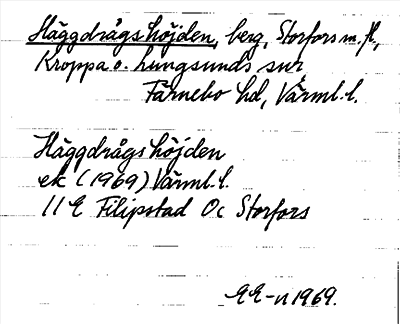 Häggdrågshöjden, berg, Storfors m.fl.,
Kroppa o. Lungsunds snr
Färnebo hd, Värml. l.
Häggdrågshöjden
ek (1969) Värml. l.
11 E Filipstad 0c Storfors
EE-n 1969.